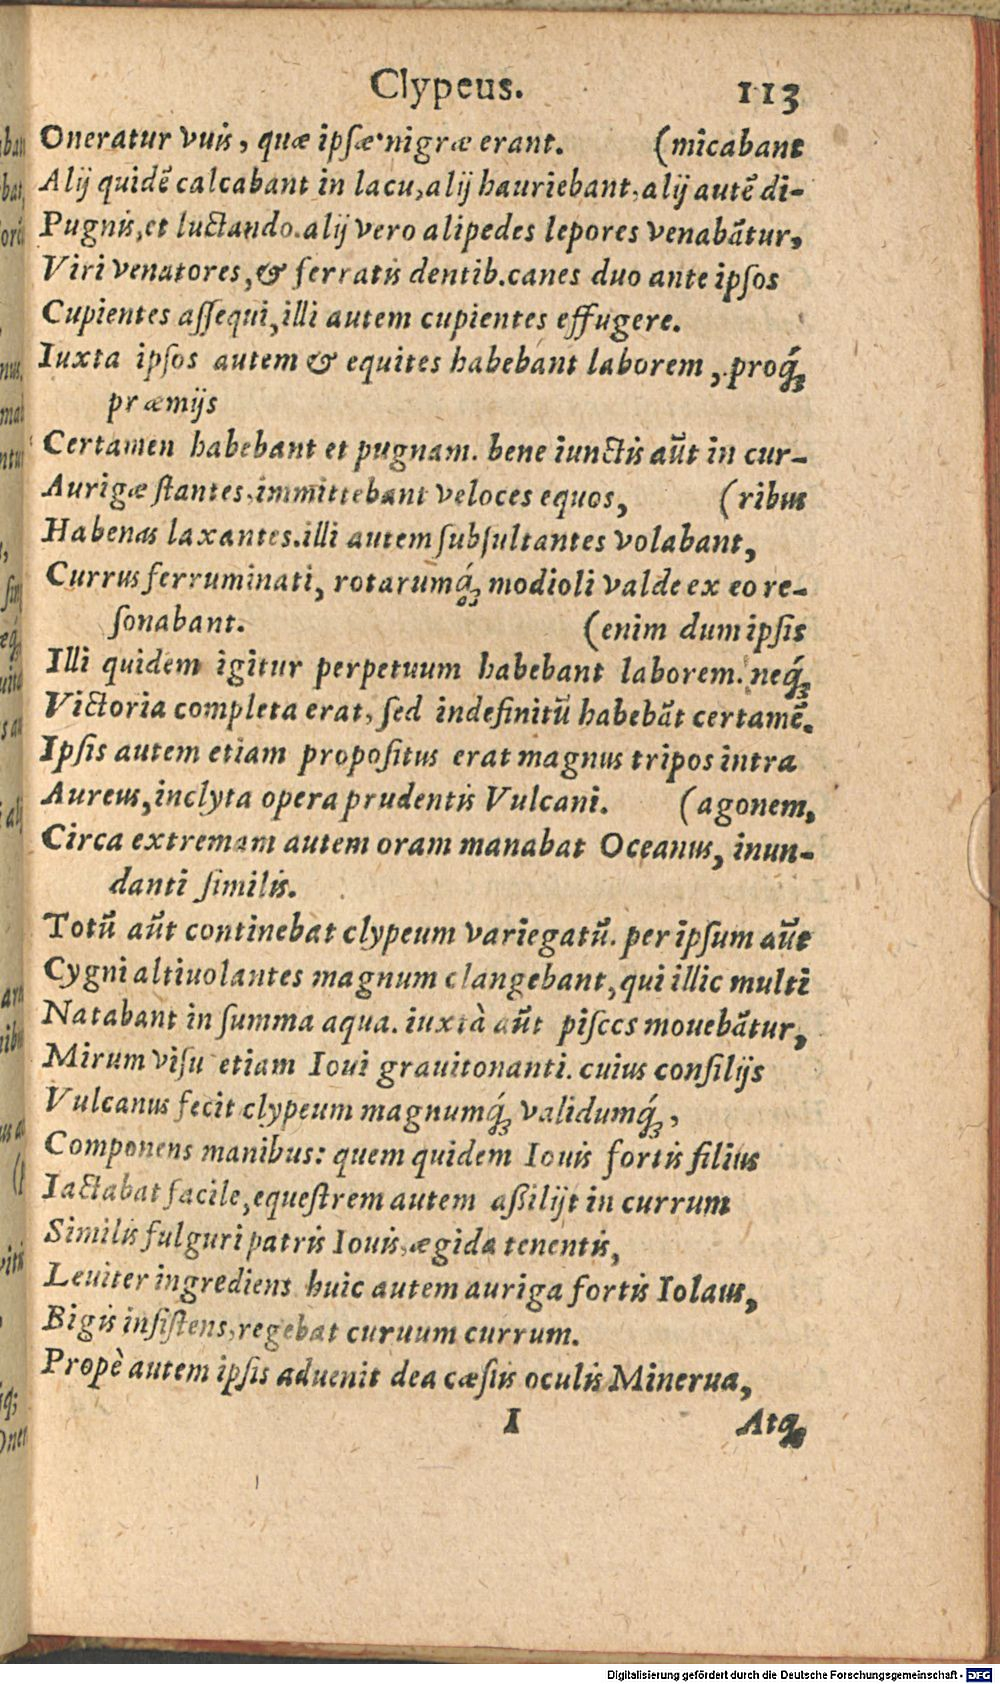 Clypeus. 113
Oneratur vuis, quæ ipſæ nigræ erant. (micabant
Alij quidē calcabant in lacu, alij hauriebant, alij autē di-
Pugnis, et luctando. alij vero alipedes lepores venabātur,
Viri venatores, & ſerratis dentib. canes duo ante ipſos
Cupientes aſſequi, illi autem cupientes effugere.
Iuxta ipſos autem & equites habebant laborem, proq́ꝫ
præmijs
Certamen habebant et pugnam. bene iunctis aūt in cur-
Aurigæ ſtantes, immittebant veloces equos, (ribus
Habenas laxantes. illi autem ſubſultantes volabant,
Currus ferruminati, rotarumq́ꝫ modioli valde ex eo re-
ſonabant. (enim dum ipſis
Illi quidem igitur perpetuum habebant laborem. neq́ꝫ
Victoria completa erat, ſed indefinitū habebāt certamē.
Ipſis autem etiam propoſitus erat magnus tripos intra
Aureus, inclyta opera prudentis Vulcani. (agonem,
Circa extremam autem oram manabat Oceanus, inun-
danti ſimilis.
Totū aūt continebat clypeum variegatū. per ipſum aūt
Cygni altiuolantes magnum clangebant, qui illic multi
Natabant in ſumma aqua. iuxtà aūt piſces mouebātur,
Mirum viſu etiam Ioui grauitonanti. cuius conſilijs
Vulcanus fecit clypeum magnumq́ꝫ validumq́ꝫ,
Componens manibus: quem quidem Iouis fortis filius
Iactabat facile, equeſtrem autem aßilijt in currum
Similis fulguri patris Iouis, ægida tenentis,
Leuiter ingrediens huic autem auriga fortis Iolaus,
Bigis inſiſtens, regebat curuum currum.
Propè autem ipſis aduenit dea cæſiis oculis Minerua,
I Atqꝫ
Digitalisierung gefördert durch die Deutsche Forschungsgemeinschaft - DFG